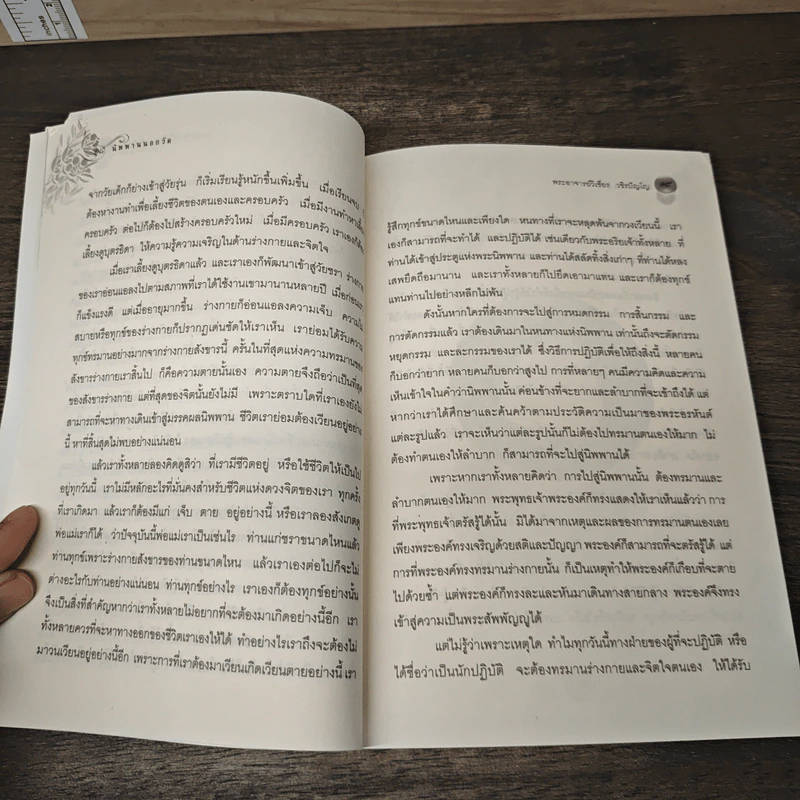 inches
1
2
นิพพานนอกวัด
จากวัยเด็กก็ย่างเข้าสู่วัยรุ่น ก็เริ่มเรียนรู้หนักขึ้นเพิ่มขึ้น เมื่อเรียนจบ
ต้องหางานทำเพื่อเลี้ยงชีวิตของตนเองและครอบครัว เมื่อมีงานทำหาเลี้ยง
ครอบครัว ต่อไปก็ต้องไปสร้างครอบครัวใหม่ เมื่อมีครอบครัว เราเองก็ต้อง
เลี้ยงดูบุตรธิดา ให้ความรู้ความเจริญในด้านร่างกายและจิตใจ
เมื่อเราเลี้ยงดูบุตรธิดาแล้ว และเราเองก็พัฒนาเข้าสู่วัยชรา ร่างกาย
ของเราอ่อนแอลงไปตามสภาพที่เราได้ใช้งานเขามานานหลายปี เมื่อก่อน
ก็แข็งแรงดี แต่เมื่ออายุมากขึ้น ร่างกายก็อ่อนแอลงความเจ็บ ความไม่
สบายหรือทุกข์ของร่างกายก็ปรากฏเด่นชัดให้เราเห็น เราย่อมได้รับความ
ทุกข์ทรมานอย่างมากจากร่างกายสังขารนี้ ครั้นในที่สุดแห่งความทรมานของ
สังขารร่างกายเราสิ้นไป ก็คือความตายนั้นเอง ความตายจึงถือว่าเป็นที่สุด
ของสังขารร่างกาย แต่ที่สุดของจิตนั้นยังไม่มี เพราะตราบใดที่เราเองยังไม่
สามารถที่จะหาทางเดินเข้าสู่มรรคผลนิพพาน ชีวิตเราย่อมต้องเวียนอยู่อย่าง
นี้ หาที่สิ้นสุดไม่พบอย่างแน่นอน
แล้วเราทั้งหลายลองคิดดูสิว่า ที่เรามีชีวิตอยู่ หรือใช้ชีวิตให้เป็นไป
อยู่ทุกวันนี้ เราไม่มีหลักอะไรที่มั่นคงสำหรับชีวิตแห่งดวงจิตของเรา ทุกครั้ง
ที่เราเกิดมา แล้วเราก็ต้องมีแก่ เจ็บ ตาย อยู่อย่างนี้ หรือเราลองสังเกตดู
พ่อแม่เราก็ได้ ว่าปัจจุบันนี้พ่อแม่เราเป็นเช่นไร ท่านแก่ชราขนาดไหนแล้ว
ท่านทุกข์เพราะร่างกายสังขารของท่านขนาดไหน แล้วเราเองต่อไปก็จะไม่
ต่างอะไรกับท่านอย่างแน่นอน ท่านทุกข์อย่างไร เราเองก็ต้องทุกข์อย่างนั้น
จึงเป็นสิ่งที่สำคัญหากว่าเราทั้งหลายไม่อยากที่จะต้องมาเกิดอย่างนี้อีก เรา
ทั้งหลายควรที่จะหาทางออกของชีวิตเราเองให้ได้ ทำอย่างไรเราถึงจะต้องไม่
มาวนเวียนอยู่อย่างนี้อีก เพราะการที่เราต้องมาเวียนเกิดเวียนตายอย่างนี้ เรา
พระอาจารย์วิเชียร วชิรปัญโญ
รู้สึกทุกข์ขนาดไหนและเพียงใด หนทางที่เราจะหลุดพ้นจากวงเวียนนี้ เรา
เองก็สามารถที่จะทำได้ และปฏิบัติได้ เช่นเดียวกับพระอริยเจ้าทั้งหลาย ที่
ท่านได้เข้าสู่ประตูแห่งพระนิพพาน และท่านได้สลัดทิ้งสิ่งเก่าๆ ที่ท่านได้หลง
เสพยึดถือมานาน และเราทั้งหลายก็ไปยึดเอามาแทน และเราก็ต้องทุกข์
แทนท่านไปอย่างหลีกไม่พ้น
ดังนั้นหากใครที่ต้องการจะไปสู่การหมดกรรม การสิ้นกรรม และ
การตัดกรรมแล้ว เราต้องเดินมาในหนทางแห่งนิพพาน เท่านั้นถึงจะตัดกรรม
หยุดกรรม และละกรรมของเราได้ ซึ่งวิธีการปฏิบัติเพื่อให้ถึงสิ่งนี้ หลายคน
ก็บอกว่ายาก หลายคนก็บอกว่าสูงไป การที่หลายๆ คนมีความคิดและความ
เห็นเข้าใจในคำว่านิพพานนั้น ค่อนข้างที่จะยากและลำบากที่จะเข้าถึงได้ แต่
หากว่าเราได้ศึกษาและค้นคว้าตามประวัติความเป็นมาของพระอรหันต์
แต่ละรูปแล้ว เราจะเห็นว่าแต่ละรูปนั้นก็ไม่ต้องไปทรมานตนเองให้มาก ไม่
ต้องทำตนเองให้ลำบาก ก็สามารถที่จะไปสู่นิพพานได้
เพราะหากเราทั้งหลายคิดว่า การไปสู่นิพพานนั้น ต้องทรมานและ
ลำบากตนเองให้มาก พระพุทธเจ้าพระองค์ก็ทรงแสดงให้เราเห็นแล้วว่า การ
ที่พระพุทธเจ้าตรัสรู้ได้นั้น มิได้มาจากเหตุและผลของการทรมานตนเองเลย
เพียงพระองค์ทรงเจริญด้วยสติและปัญญา พระองค์ก็สามารถที่จะตรัสรู้ได้ แต่
การที่พระองค์ทรงทรมานร่างกายนั้น ก็เป็นเหตุทำให้พระองค์ก็เกือบที่จะตาย
ไปด้วยซ้ำ แต่พระองค์ก็ทรงละและหันมาเดินทางสายกลาง พระองค์จึงทรง
เข้าสู่ความเป็นพระสัพพัญญูได้
แต่ไม่รู้ว่าเพราะเหตุใด ทำไมทุกวันนี้ทางฝ่ายของผู้ที่จะปฏิบัติ หรือ
ได้ชื่อว่าเป็นนักปฏิบัติ จะต้องทรมานร่างกายและจิตใจตนเอง ให้ได้รับ